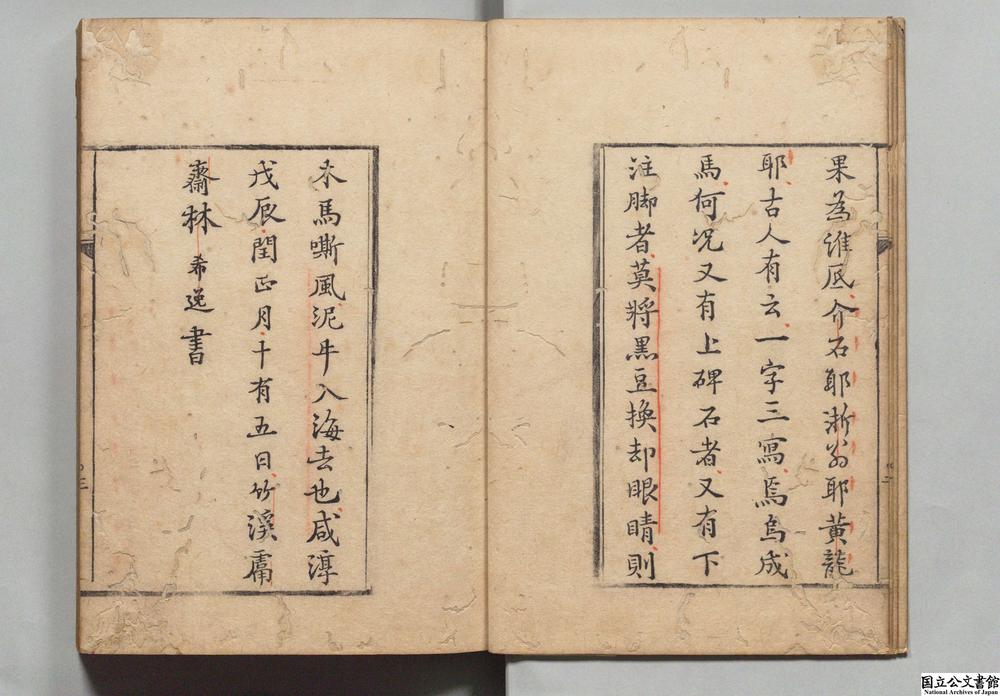 果為誰底介石耶浙翁耶黄龍
耶古人有云一字三寫焉烏成
馬何况又有上碑石者又有下
注脚者莫將黒豆換却眼睛則
木馬嘶風泥牛入海去也咸淳
戊辰閏正月十有五日竹溪鬳
齋林希逸書
国立公文書館
National Archives of Japan